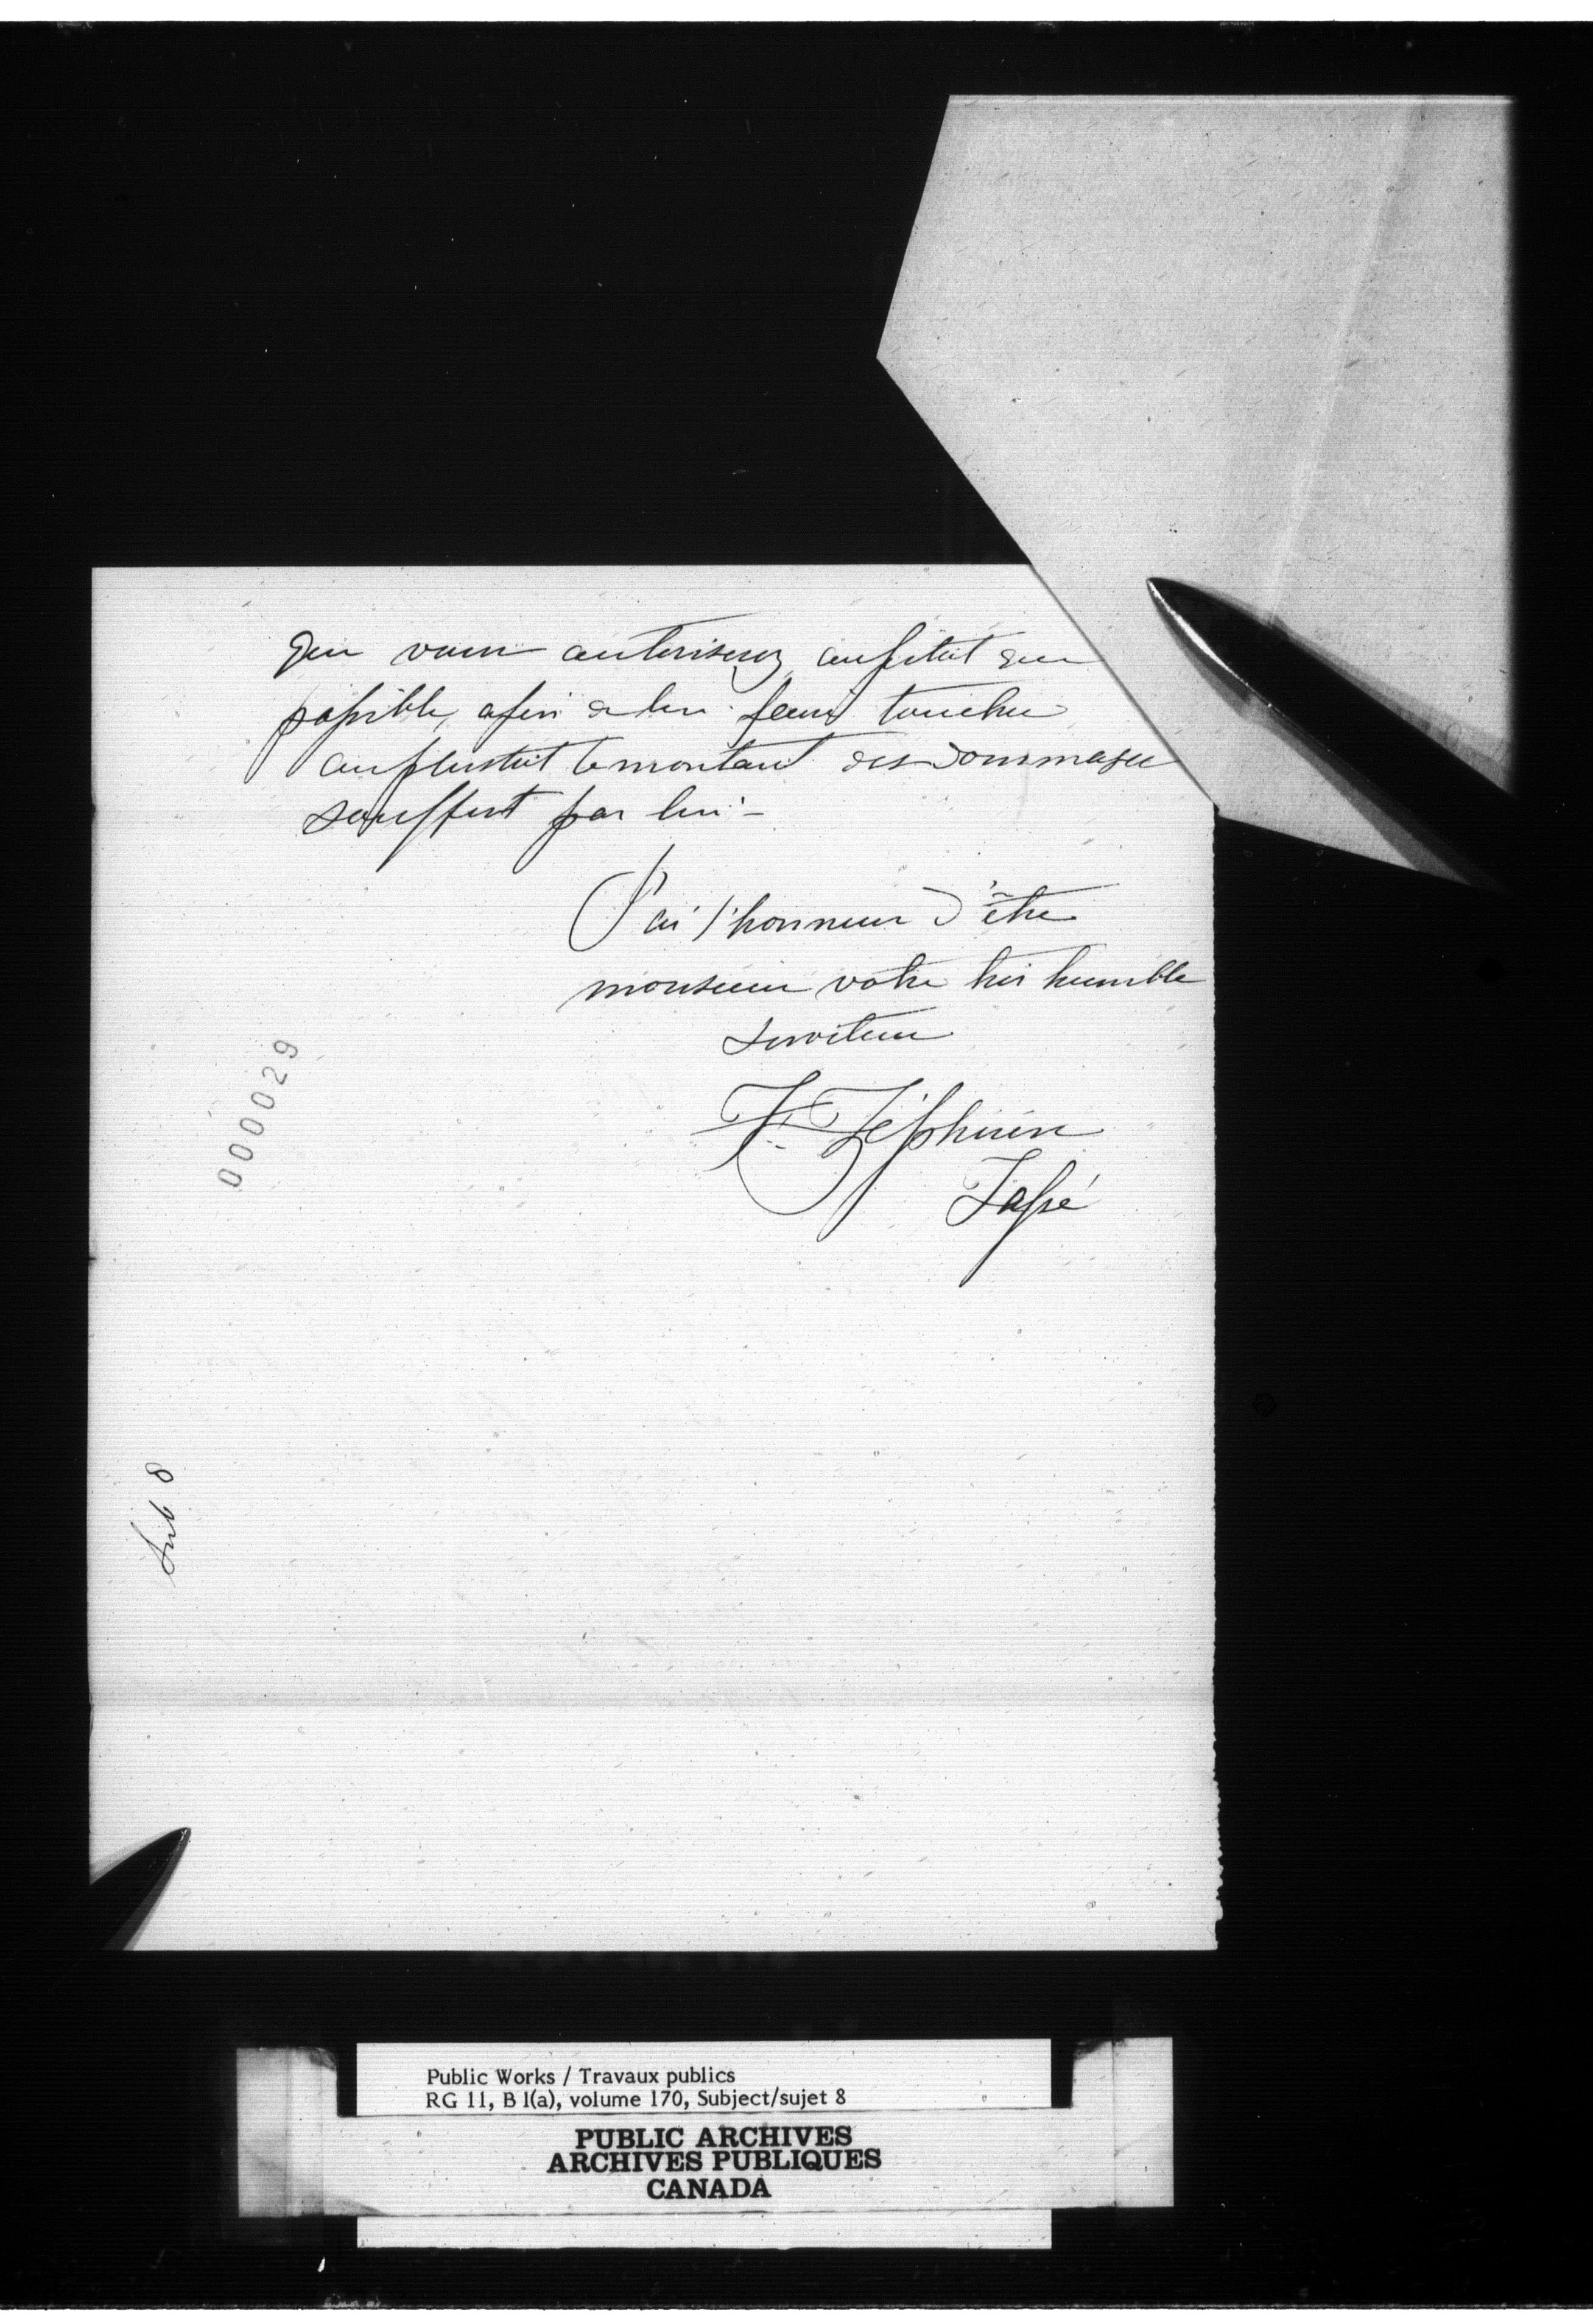 que vous autoriserez aussitot que
possible, afin de lui faire toucher
au plustot le montant des dommages
souffert par lui -
J'ai l'honneur d'être
monsieur votre très humble
serviteur
F. Zéphirin
Tassé
000029
Sub 8
Public Works / Travaux publics
RG 11, B 1(a), volume 170, Subject/sujet 8
PUBLIC ARCHIVES
ARCHIVES PUBLIQUES
CANADA